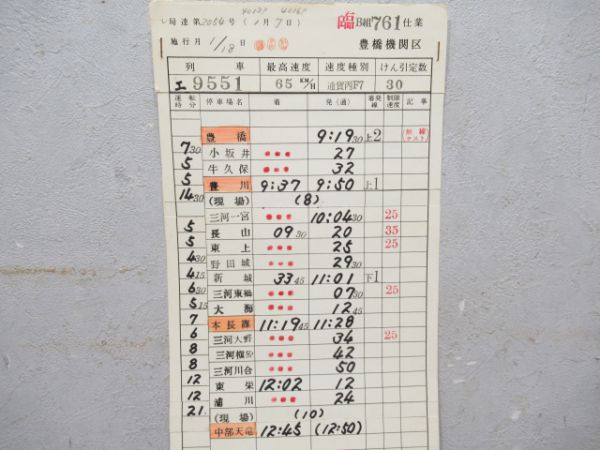 4013P 4016P
局達第2054号(1月7日)
臨B組761仕業
施行月 1/18日
豊橋機関区
列車 最高速度 速度種別 けん引定数
工9551 65 KM/H 通貨丙F7 30
運転時分 停車場名 着 発(通) 着発線 制限速度 記事
豊橋 9:19 30 上2
7 30 小坂井 ••• 27
5 牛久保 ••• 32
5 豊川 9:37 9:50 上1
14 30 (現場) (8)
三河一宮 ••• 10:04 30 25
5 長山 09 30 20 35
5 東上 ••• 25 25
4 30 野田城 ••• 29 30
4 15 新城 33 45 11:01 下1
6 30 三河東郷 ••• 07 30 25
5 15 大海 ••• 12 45
7 本長篠 11:19 45 11:28
6 三河大野 ••• 34 25
8 三河槇原 ••• 42
8 三河川合 ••• 50
12 東栄 12:02 12
12 浦川 ••• 24
21 (現場) (10)
中部天竜 12:45 (12:50)